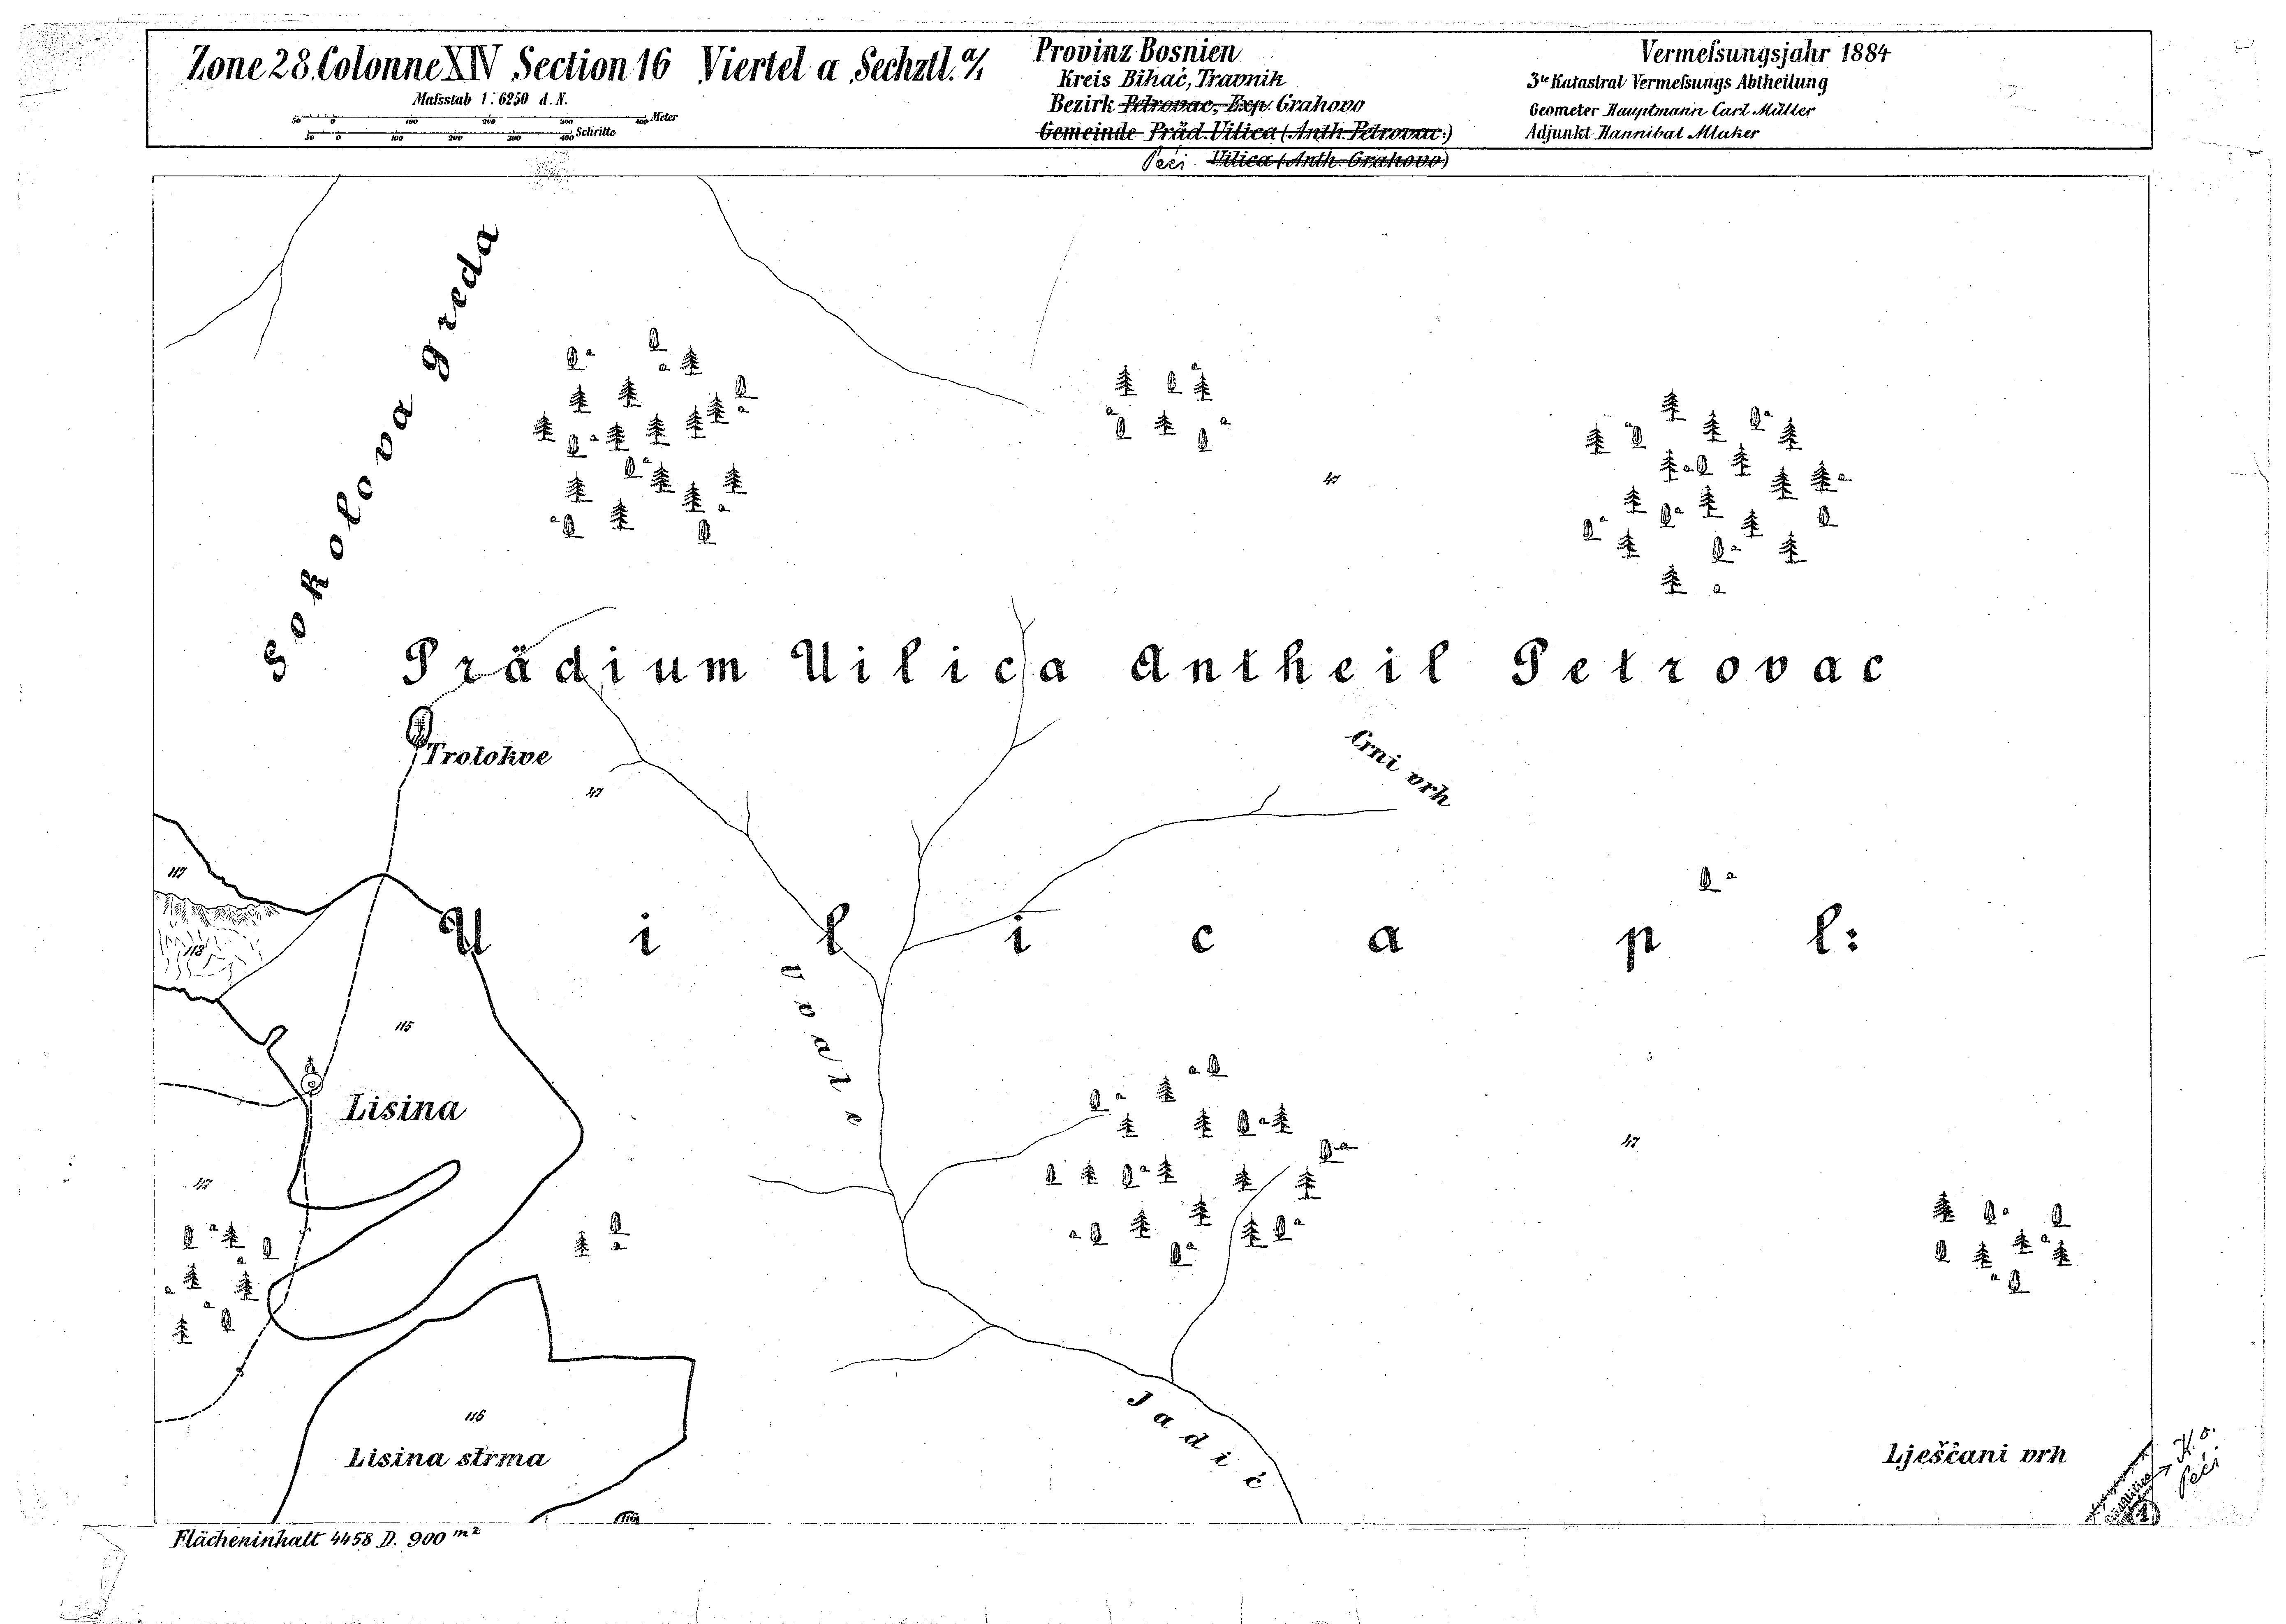 Zone 28. Colonne XIV Section 16 Viertel a Sechztl. a/1
Maſsstab 1:6250 d. N.
50 0 100 200 300 400 Meter
50 0 100 200 300 400 Schritte
Provinz Bosnien
Kreis Bihać, Travnik
Bezirk Petrovac, Exp. Grahovo
Gemeinde Präd. Uilica (Anth. Petrovac.)
Peći Uilica (Anth. Grahovo)
Vermeſsungsjahr 1884
3te Katastral Vermeſsungs Abtheilung
Geometer Hauptmann Carl Müller
Adjunkt Hannibal Mlaker
Sokolova greda
47
Prädium Uilica Antheil Petrovac
Trolokve
Crni vrh
47
117
Uilica pl:
118
uvale
115
Lisina
47
47
Jadić
116
Lisina strma
Lješčani vrh
K. o.
Peći
116
1
Flächeninhalt 4458 D. 900 m2